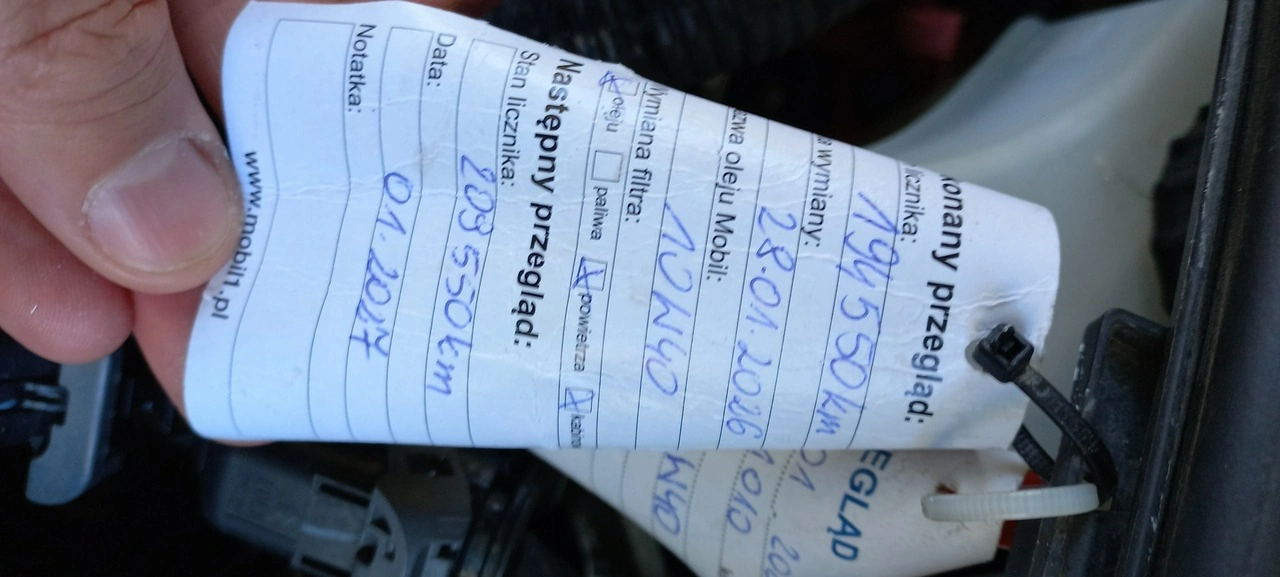 onany przegląd:
licznika:
194550km
a wymiany:
28.01.2026
zwa oleju Mobil:
10W40
Wymiana filtra:
oleju paliwa powietrza kabino
Następny przegląd:
Stan licznika:
209550km
Data:
01.2027
Notatka:
www.mobil1.pl
EGLĄD
01 202
1010
W40